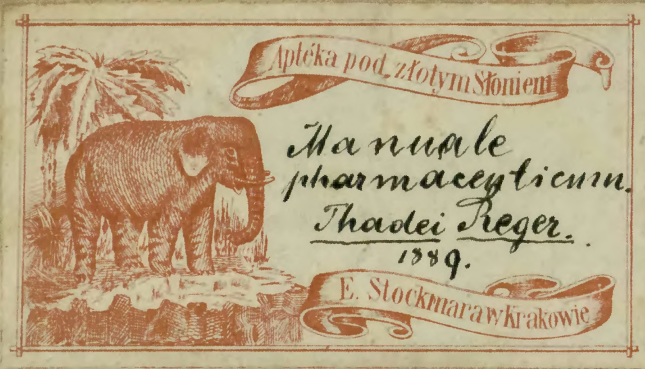 Aptéka pod złotym Słoniem
Manuale
pharmaceuticum.
Thadei Reger.
1889.
E. Stockmara w Krakowie